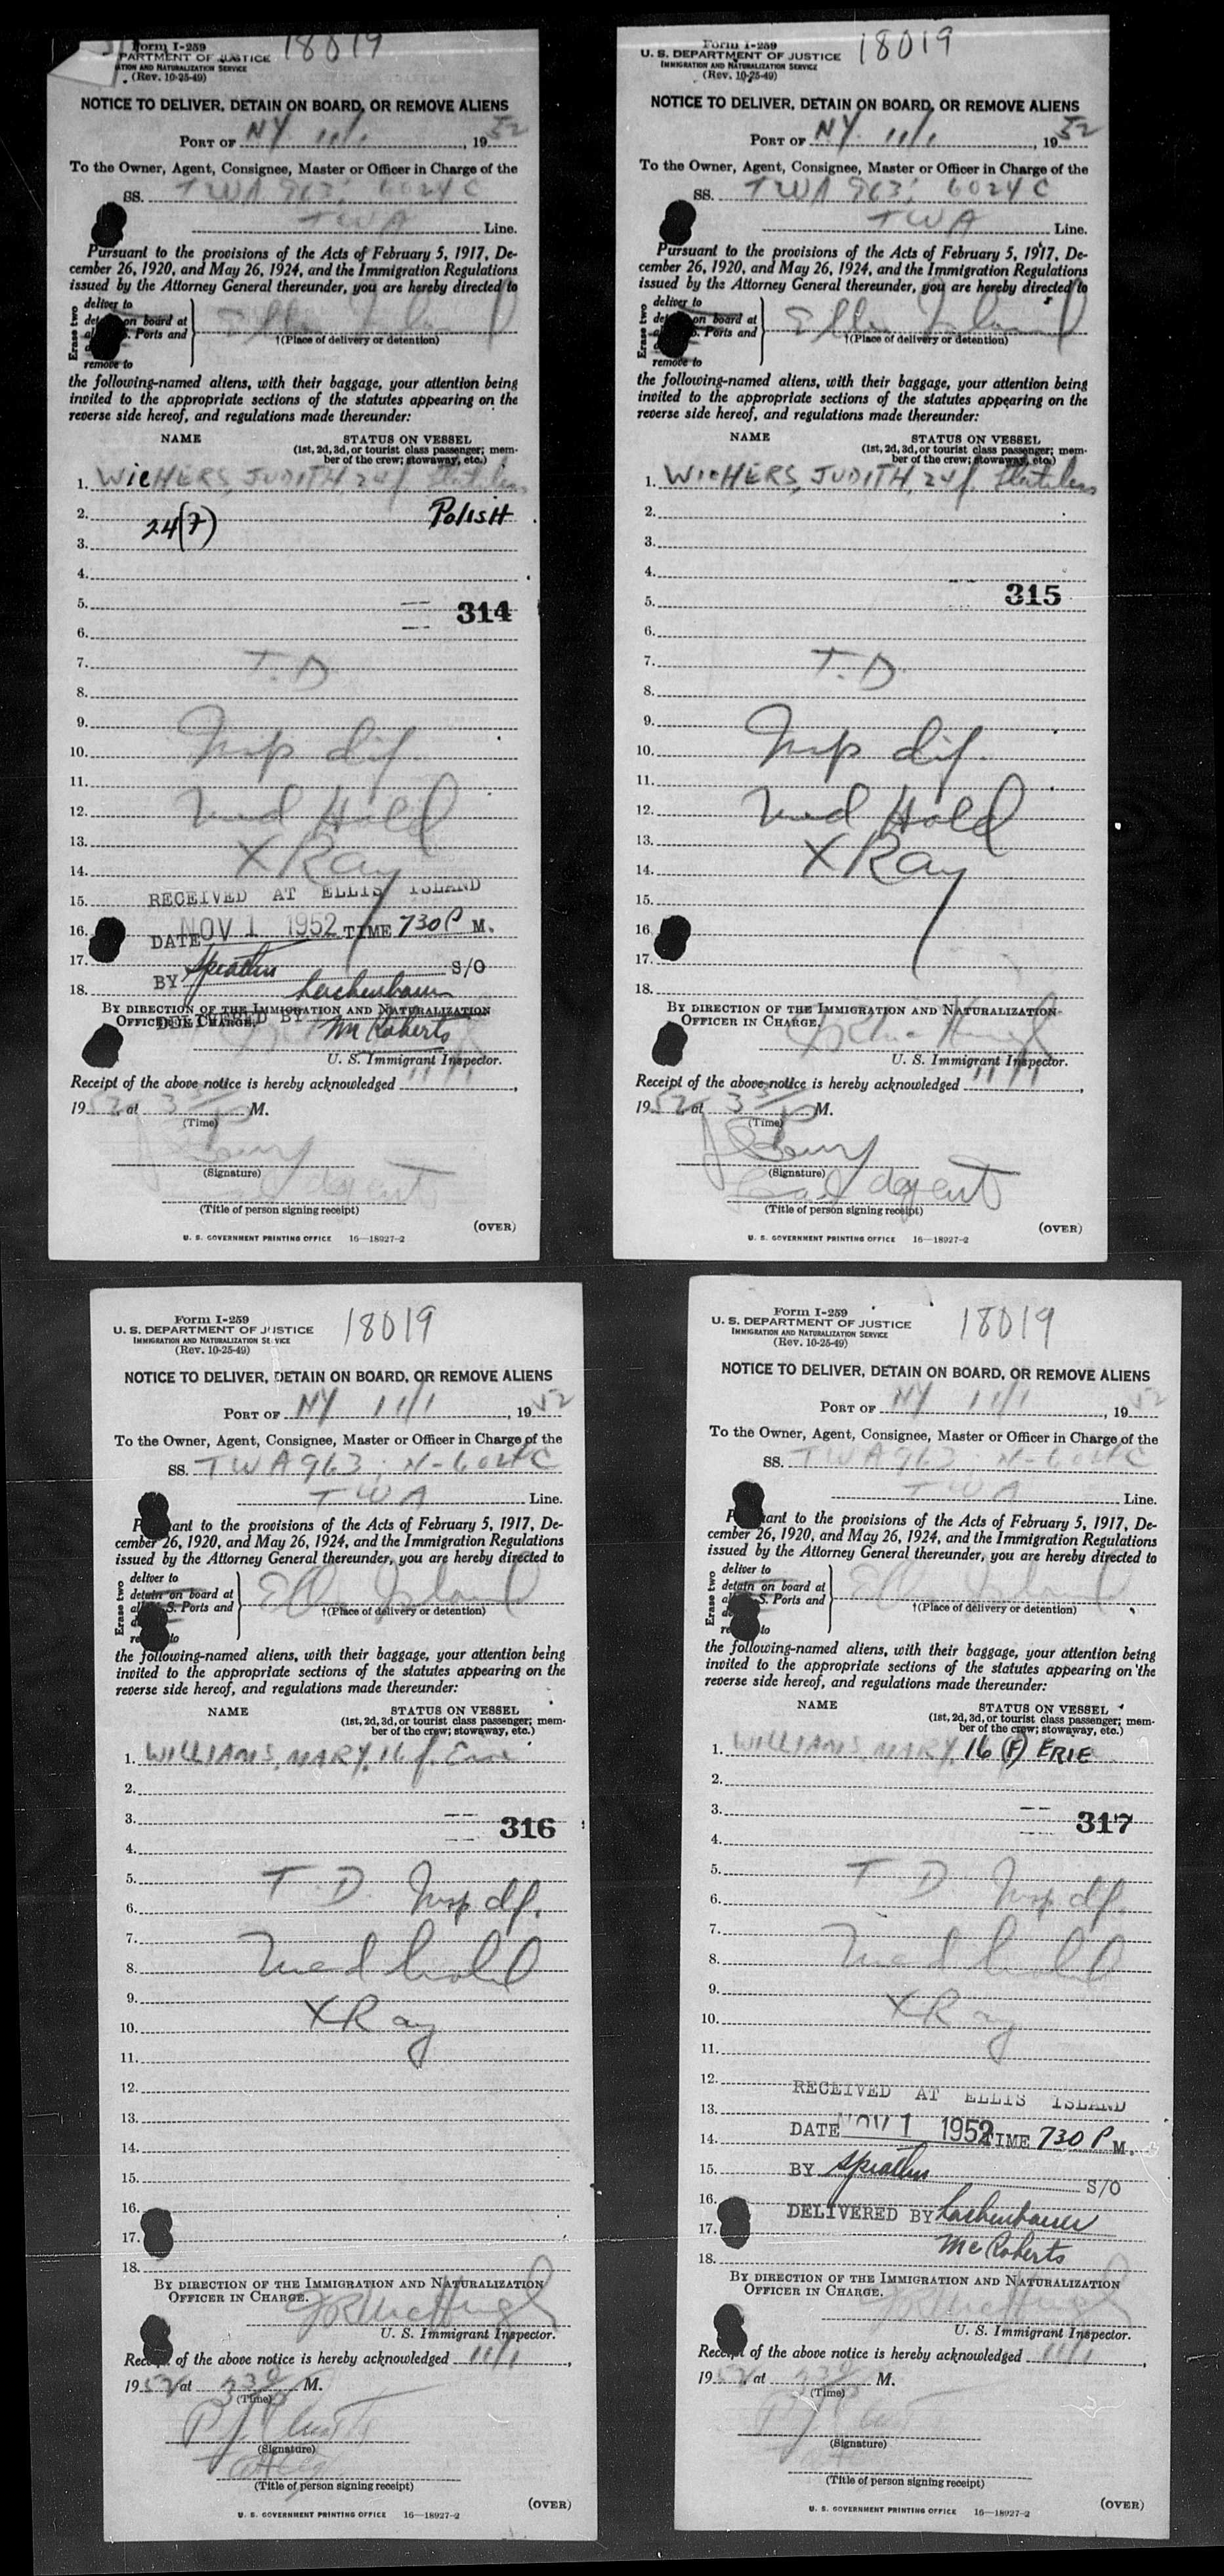 Form I-259
PARTMENT OF JUSTICE
ATION AND NATURALIZATION SERVICE
(Rev. 10-25-49)
18019
NOTICE TO DELIVER, DETAIN ON BOARD, OR REMOVE ALIENS
PORT OF NY 11/1, 1952
To the Owner, Agent, Consignee, Master or Officer in Charge of the
SS. TWA 963; 6024C
TWA Line.
Pursuant to the provisions of the Acts of February 5, 1917, De-
cember 26, 1920, and May 26, 1924, and the Immigration Regulations
issued by the Attorney General thereunder, you are hereby directed to
Erase two
deliver to
on board at
Ports and
remove to
Ellis Island
†(Place of delivery or detention)
the following-named aliens, with their baggage, your attention being
invited to the appropriate sections of the statutes appearing on the
reverse side hereof, and regulations made thereunder:
NAME STATUS ON VESSEL
(1st, 2d, 3d, or tourist class passenger; mem-
ber of the crew; stowaway, etc.)
1. WIEHERS, JUDITH, 24 f.
2. 24(7) POLISH
3.
4.
5. 314
6.
7. T.D
8.
9.
10. Insp dif.
11.
12. Med Hold
13.
14. X Ray
15. RECEIVED AT ELLIS ISLAND
16. DATE NOV 1 1952 TIME 730 P M.
17. BY S/O
18.
BY DIRECTION OF THE IMMIGRATION AND NATURALIZATION
OFFICER IN CHARGE.
DELIVERED BY McRoberts
U. S. Immigrant Inspector.
Receipt of the above notice is hereby acknowledged 11/1,
1952, at M.
(Time)
(Signature)
agent
(Title of person signing receipt)
(OVER)
U. S. GOVERNMENT PRINTING OFFICE 16—18927-2
Form I-259
U. S. DEPARTMENT OF JUSTICE
IMMIGRATION AND NATURALIZATION SERVICE
(Rev. 10-25-49)
18019
NOTICE TO DELIVER, DETAIN ON BOARD, OR REMOVE ALIENS
PORT OF NY 11/1, 1952
To the Owner, Agent, Consignee, Master or Officer in Charge of the
SS. TWA 963; 6024C
TWA Line.
Pursuant to the provisions of the Acts of February 5, 1917, De-
cember 26, 1920, and May 26, 1924, and the Immigration Regulations
issued by the Attorney General thereunder, you are hereby directed to
Erase two
deliver to
on board at
Ports and
remove to
Ellis Island
†(Place of delivery or detention)
the following-named aliens, with their baggage, your attention being
invited to the appropriate sections of the statutes appearing on the
reverse side hereof, and regulations made thereunder:
NAME STATUS ON VESSEL
(1st, 2d, 3d, or tourist class passenger; mem-
ber of the crew; stowaway, etc.)
1. WIEHERS, JUDITH, 24 f.
2.
3.
4.
5. 315
6.
7. T.D
8.
9.
10. Insp dif.
11.
12. Med Hold
13.
14. X Ray
15.
16.
17.
18.
BY DIRECTION OF THE IMMIGRATION AND NATURALIZATION
OFFICER IN CHARGE.
U. S. Immigrant Inspector.
Receipt of the above notice is hereby acknowledged 11/1,
1952 at M.
(Time)
(Signature)
agent
(Title of person signing receipt)
(OVER)
U. S. GOVERNMENT PRINTING OFFICE 16—18927-2
Form I-259
U. S. DEPARTMENT OF JUSTICE
IMMIGRATION AND NATURALIZATION SERVICE
(Rev. 10-25-49)
18019
NOTICE TO DELIVER, DETAIN ON BOARD, OR REMOVE ALIENS
PORT OF NY 11/1, 1952
To the Owner, Agent, Consignee, Master or Officer in Charge of the
SS. TWA 963; N-6024C
TWA Line.
Pursuant to the provisions of the Acts of February 5, 1917, De-
cember 26, 1920, and May 26, 1924, and the Immigration Regulations
issued by the Attorney General thereunder, you are hereby directed to
Erase two
deliver to
detain on board at
S. Ports and
to
Ellis Island
†(Place of delivery or detention)
the following-named aliens, with their baggage, your attention being
invited to the appropriate sections of the statutes appearing on the
reverse side hereof, and regulations made thereunder:
NAME STATUS ON VESSEL
(1st, 2d, 3d, or tourist class passenger; mem-
ber of the crew; stowaway, etc.)
1. WILLIAMS, MARY, 16 f. Eire
2.
3. 316
4.
5. T.D. Insp df.
6.
7.
8. Med hold
9.
10. X Ray
11.
12.
13.
14.
15.
16.
17.
18.
BY DIRECTION OF THE IMMIGRATION AND NATURALIZATION
OFFICER IN CHARGE.
U. S. Immigrant Inspector.
Receipt of the above notice is hereby acknowledged 11/1,
1952 at M.
(Time)
(Signature)
(Title of person signing receipt)
(OVER)
U. S. GOVERNMENT PRINTING OFFICE 16—18927-2
Form I-259
U. S. DEPARTMENT OF JUSTICE
IMMIGRATION AND NATURALIZATION SERVICE
(Rev. 10-25-49)
18019
NOTICE TO DELIVER, DETAIN ON BOARD, OR REMOVE ALIENS
PORT OF NY 11/1, 1952
To the Owner, Agent, Consignee, Master or Officer in Charge of the
SS. TWA 963 N-6024C
TWA Line.
Pursuant to the provisions of the Acts of February 5, 1917, De-
cember 26, 1920, and May 26, 1924, and the Immigration Regulations
issued by the Attorney General thereunder, you are hereby directed to
Erase two
deliver to
detain on board at
S. Ports and
to
Ellis Island
†(Place of delivery or detention)
the following-named aliens, with their baggage, your attention being
invited to the appropriate sections of the statutes appearing on the
reverse side hereof, and regulations made thereunder:
NAME STATUS ON VESSEL
(1st, 2d, 3d, or tourist class passenger; mem-
ber of the crew; stowaway, etc.)
1. WILLIAMS, MARY, 16 (F) ERIE
2.
3. 317
4.
5. T.D Insp df.
6.
7.
8. Med hold
9.
10. X Ray
11.
12. RECEIVED AT ELLIS ISLAND
13.
14. DATE NOV 1 1952 TIME 730 P M.
15. BY S/O
16. DELIVERED BY
17. McRoberts
18.
BY DIRECTION OF THE IMMIGRATION AND NATURALIZATION
OFFICER IN CHARGE.
U. S. Immigrant Inspector.
Receipt of the above notice is hereby acknowledged 11/1,
1952 at M.
(Time)
(Signature)
(Title of person signing receipt)
(OVER)
U. S. GOVERNMENT PRINTING OFFICE 16—18927-2